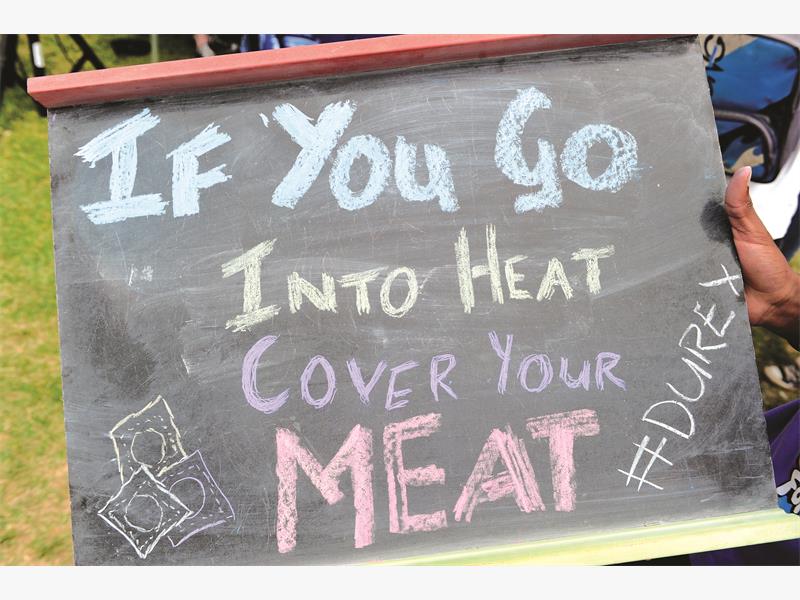 If You Go
Into Heat
Cover Your
MEAT
#DUREX